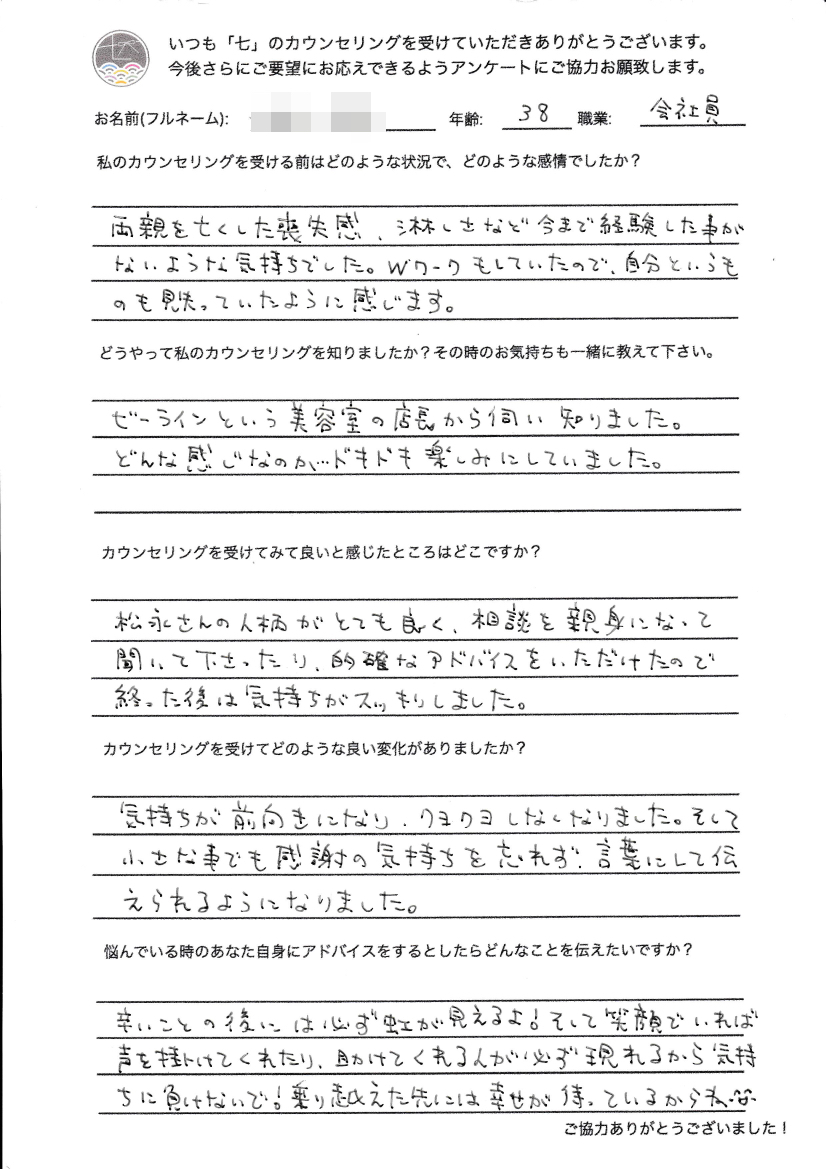 いつも「七」のカウンセリングを受けていただきありがとうございます。
今後さらにご要望にお応えできるようアンケートにご協力お願致します。
お名前(フルネーム): 年齢: 38 職業: 会社員
私のカウンセリングを受ける前はどのような状況で、どのような感情でしたか？
両親を亡くした喪失感、淋しさなど今まで経験した事が
ないような気持ちでした。Wワークもしていたので、自分というも
のも見失っていたように感じます。
どうやって私のカウンセリングを知りましたか？その時のお気持ちも一緒に教えて下さい。
ビーラインという美容室の店長から伺い知りました。
どんな感じなのか…ドキドキ楽しみにしていました。
カウンセリングを受けてみて良いと感じたところはどこですか？
松永さんの人柄がとても良く、相談を親身になって
聞いて下さったり、的確なアドバイスをいただけたので
終った後は気持ちがスッキリしました。
カウンセリングを受けてどのような良い変化がありましたか？
気持ちが前向きになり、クヨクヨしなくなりました。そして
小さな事でも感謝の気持ちを忘れず、言葉にして伝
えられるようになりました。
悩んでいる時のあなた自身にアドバイスをするとしたらどんなことを伝えたいですか？
辛いことの後には必ず虹が見えるよ！そして笑顔でいれば
声を掛けてくれたり、助けてくれる人が必ず現れるから気持
ちに負けないで！乗り越えた先には幸せが待っているからね
ご協力ありがとうございました！